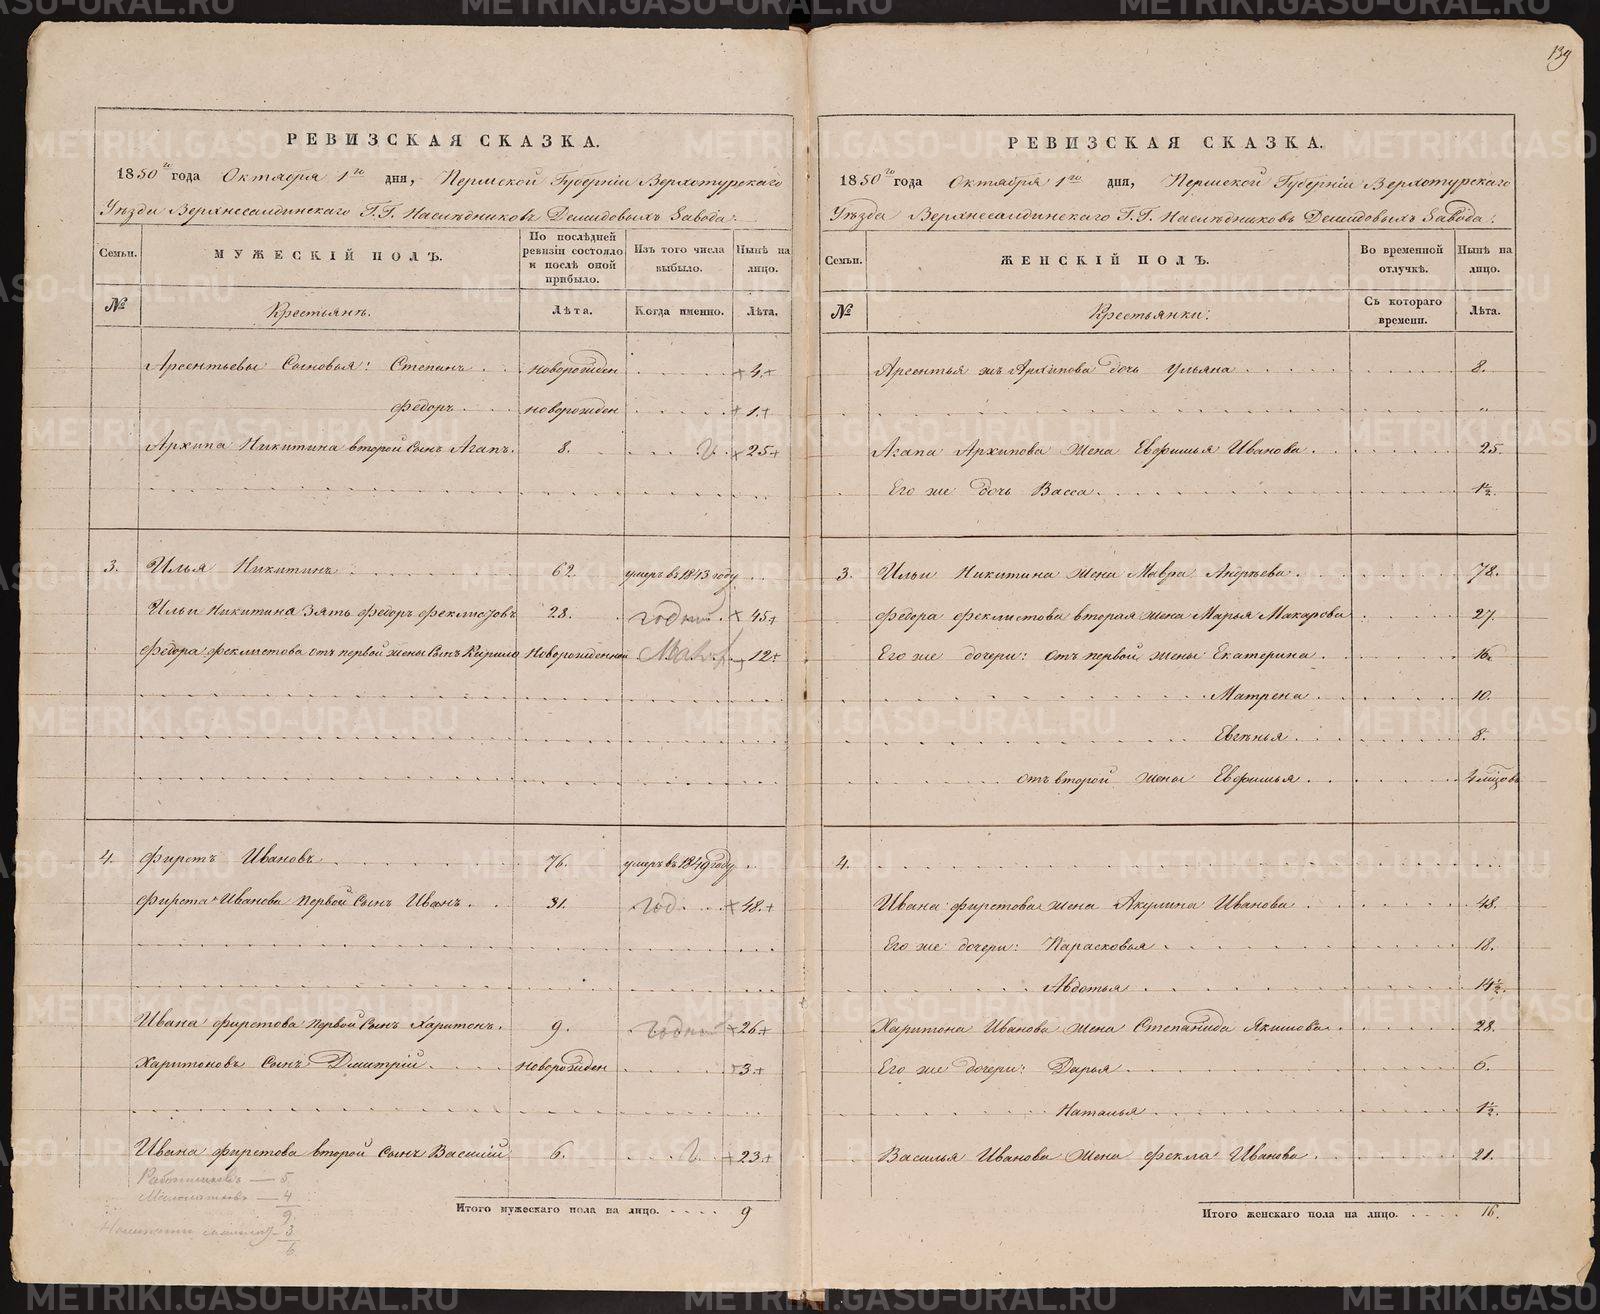 139
РЕВИЗСКАЯ СКАЗКА.
1850го года Октября 1го дня, Пермской Губерніи Верхотурскаго
Уѣзда Верхнесалдинскаго Г.Г. Наслѣдниковъ Демидовыхъ Завода.
Семьи. МУЖЕСКІЙ ПОЛЪ. По послѣдней ревизіи состояло и послѣ оной прибыло. Изъ того числа выбыло. Нынѣ на лицо.
№ Крестьянъ. Лѣта. Когда именно. Лѣта.
Арсентьевы Сыновья: Степанъ новорожден 4.
Федоръ новорожден 1.
Архипа Никитина второй сынъ Агапъ. 8. Г. 25
3. Илья Никитинъ 62. умеръ въ 1843 году
Ильи Никитина Зять Федоръ Феклистовъ 28. годный 45
Федора Феклистова отъ первой жены сынъ Кирило Новорожденной 12
4. Фирстъ Ивановъ 76. умеръ въ 1849 году
Фирста Иванова первой сынъ Иванъ. 31. год. 48.
Ивана Фирстова первой сынъ Харитонъ. 9. годный 26
Харитоновъ сынъ Дмитрій новорожден 3.
Ивана Фирстова второй сынъ Василій 6. Г. 23.
Работниковъ — 5
Малолѣтковъ — 4
9
3
6
Итого мужескаго пола на лицо. 9
РЕВИЗСКАЯ СКАЗКА.
1850го года Октября 1го дня, Пермской Губерніи Верхотурскаго
Уѣзда Верхнесалдинскаго Г.Г. Наслѣдниковъ Демидовыхъ Завода.
Семьи. ЖЕНСКІЙ ПОЛЪ. Во временной отлучкѣ. Нынѣ на лицо.
№ Крестьянки. Съ котораго времени. Лѣта.
Арсентья Архипова дочь Ульяна 8.
„
Агапа Архипова жена Евфимья Иванова 25.
Его же дочь Васса 1½.
3. Ильи Никитина жена Мавра Андрѣева 78.
Федора Феклистова вторая жена Марья Макарова 27.
Его же дочери: отъ первой жены Екатерина 16.
Матрена 10.
Евгѣнья 8.
отъ второй жены Евфимья
4.
Ивана Фирстова жена Акулина Иванова 48.
Его же дочери: Парасковья 18.
Авдотья 14½.
Харитона Иванова жена Степанида Якимова 28.
Его же дочери: Дарья 6.
Наталья 1½.
Василья Иванова жена Фекла Иванова 21.
Итого женскаго пола на лицо. 16.
METRIKI.GASO-URAL.RU